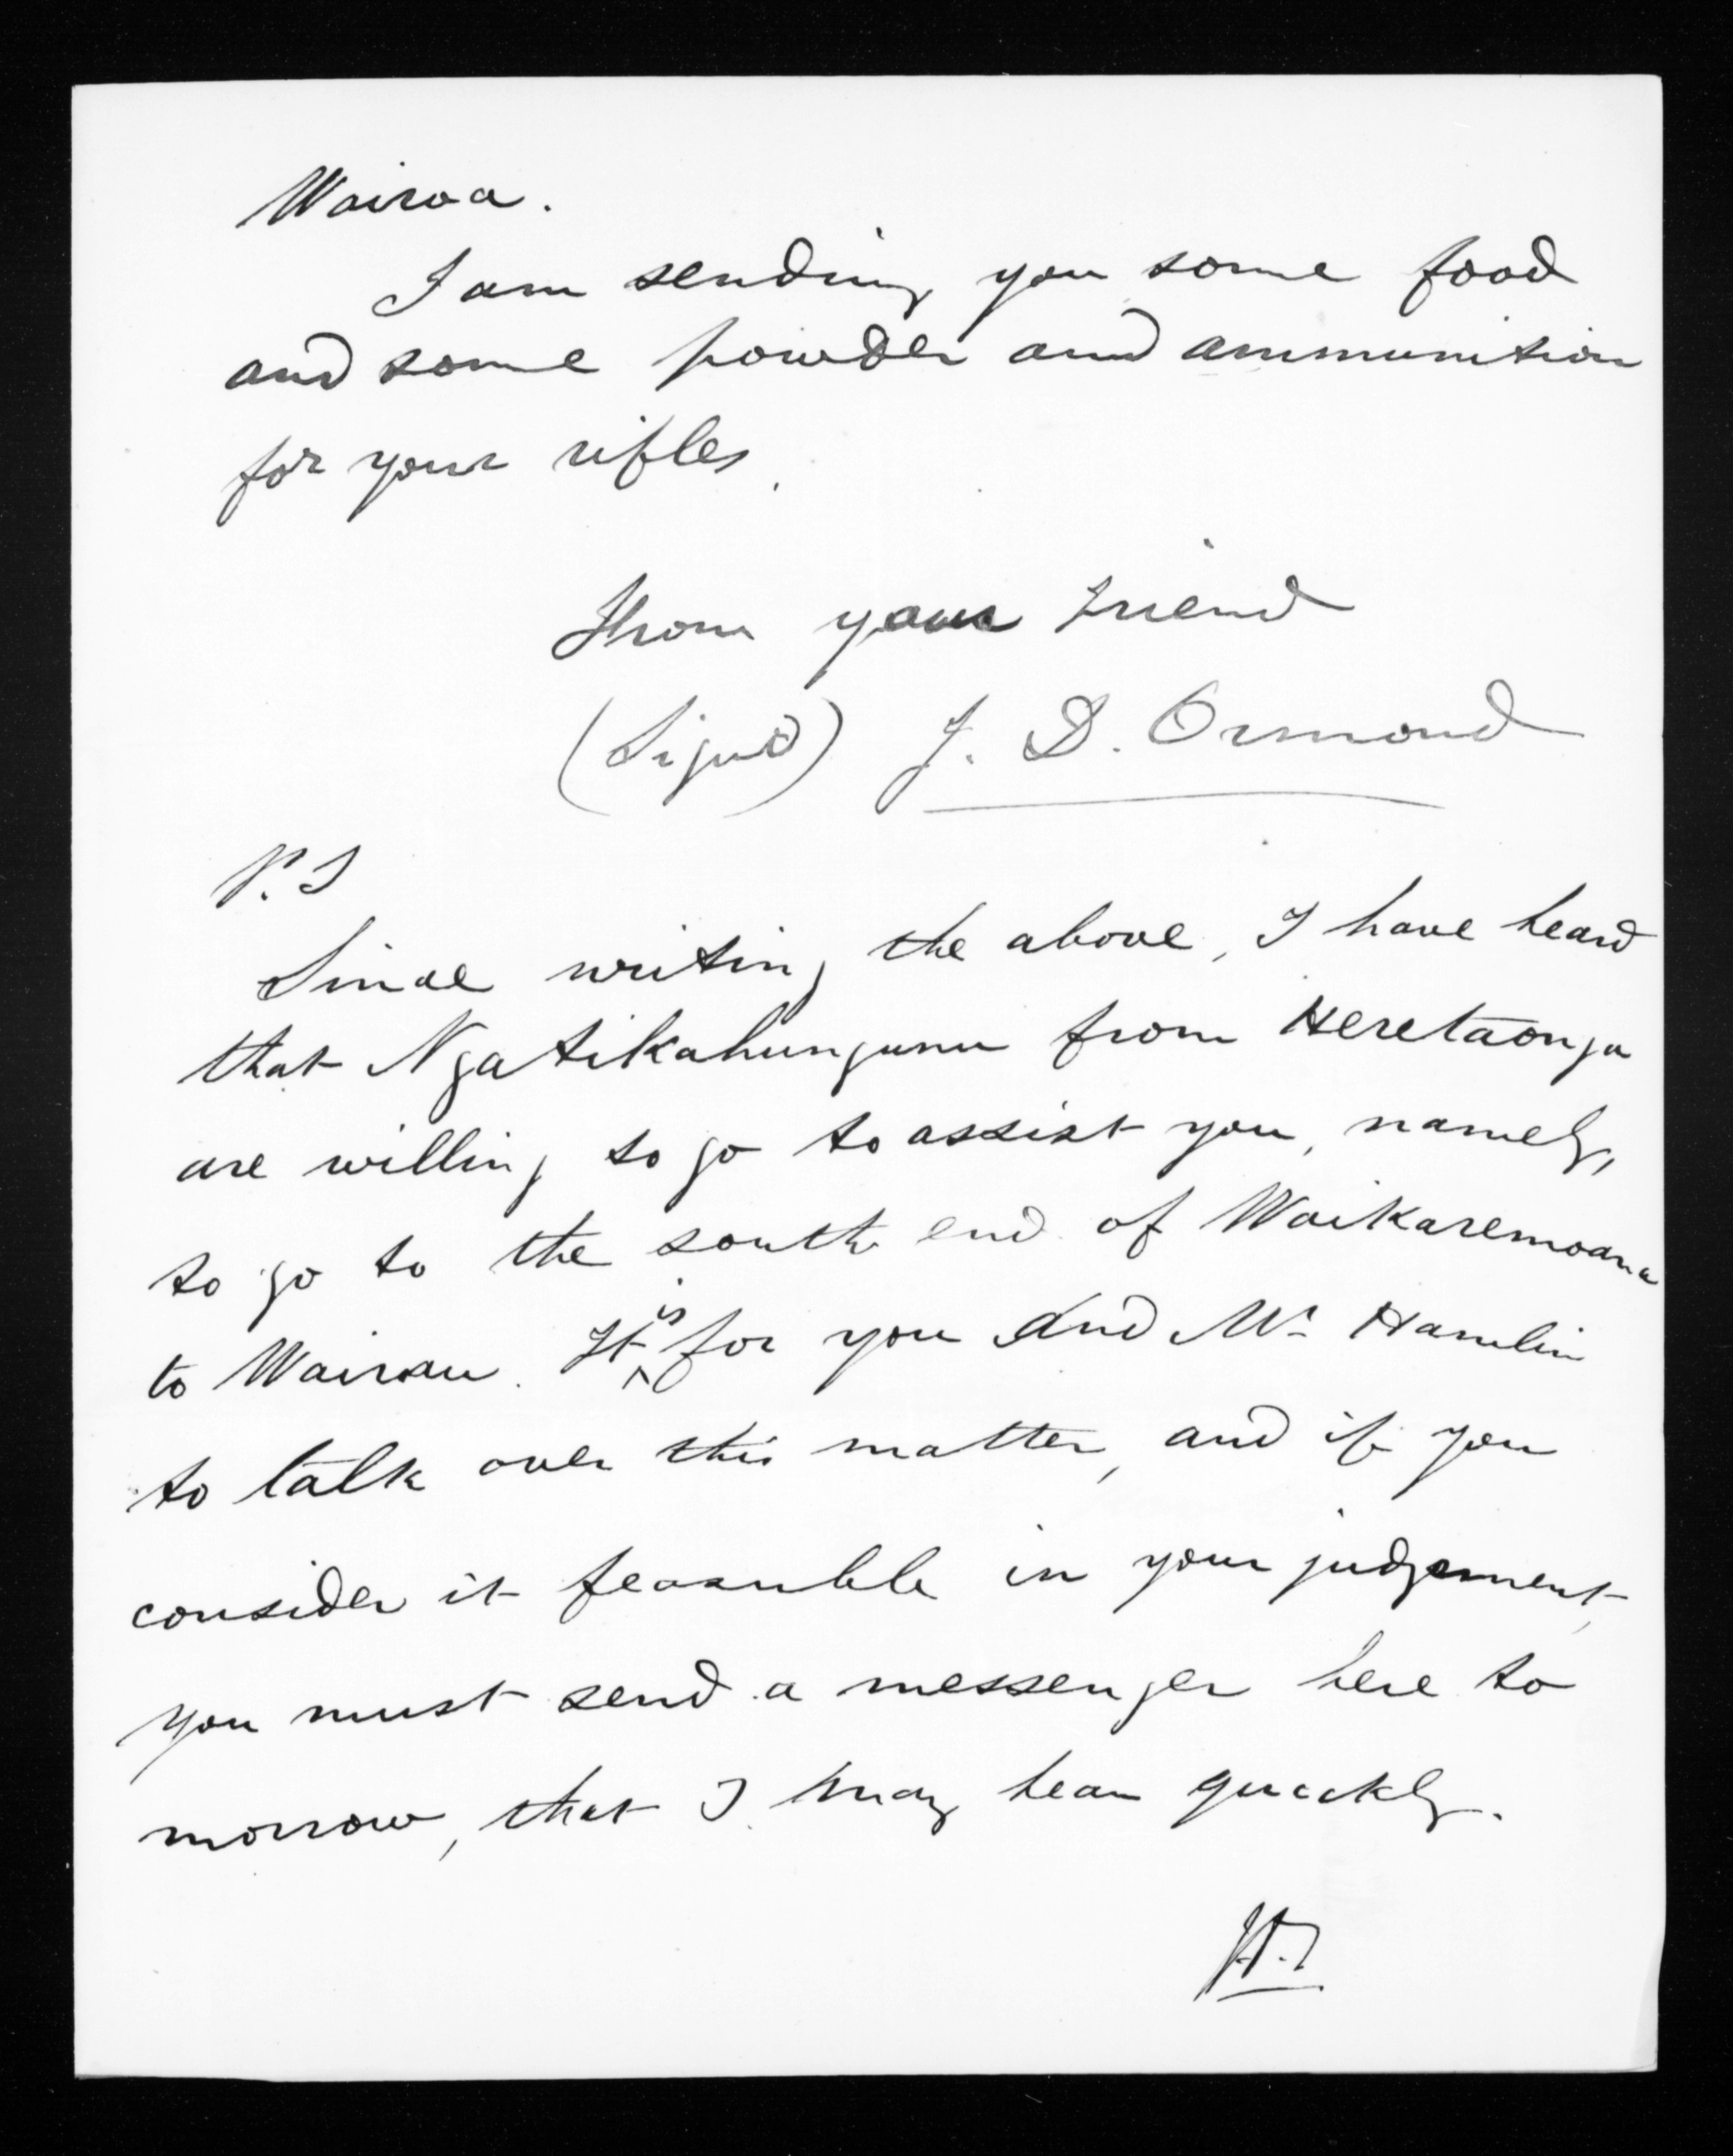 Wairoa.
I am sending you some food
and some powder and ammunition
for your rifles.
From your friend
(Signd) J. D. Ormond
P.S
Since writing the above, I have heard
that Ngatikahungunu from Heretaonga
are willing to go to assist you, namely,
to go to the south end of Waikaremoana
to Wairau. It is for you and Mr Hamlin
to talk over this matter, and if you
consider it feasuble in your judgement,
you must send a messenger here to
morrow, that I may hear quickly.